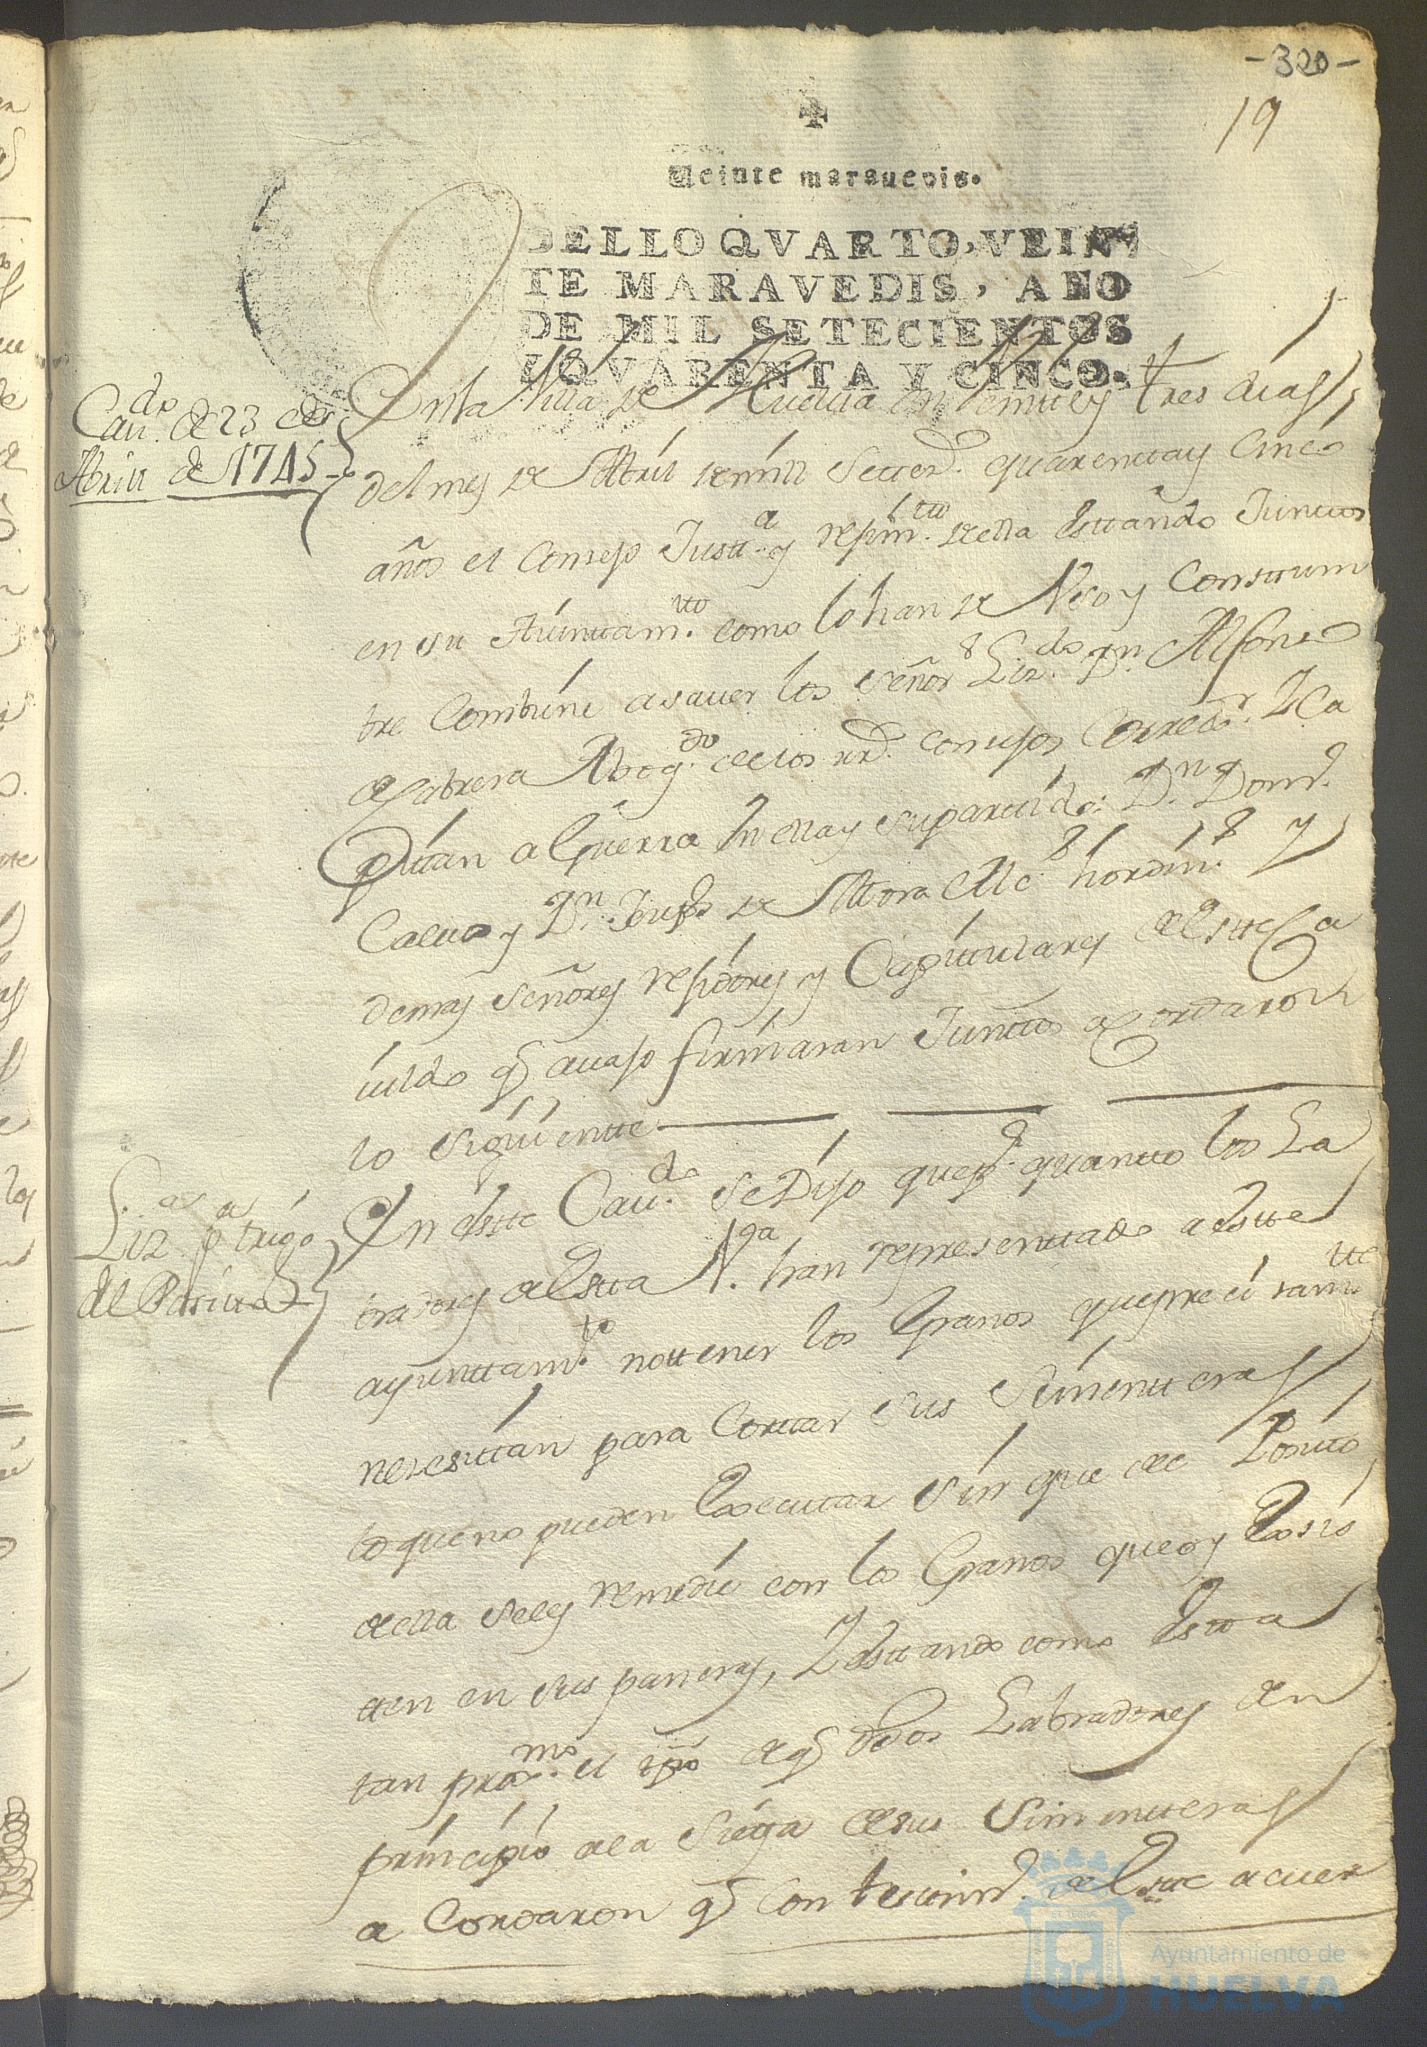 -320-
19
Veinte marauedis.
SELLO QVARTO, VEIN
TE MARAVEDIS, AÑO
DE MIL SETECIENTOS
Y QVARENTA Y CINCO.
Cav.do de 23 de
Abrill de 1745
En la Villa de Huelva en veintte y tres dias
del mes de Abril de mill settez.s quarentta y Cinco
años el Consejo Justt.a y rexim.tto de ella esttando Junttos
en su Aiunttam.tto como lo han de Vso y Consttum
tre Combiene a saver los señor.s Liz.do D.n Alfonso
de Cabrera Abog.do de los rr.s consejos Correx.r y Ca
pittan a Guerra En ella y su parttido: D.n Dom.o
Calvo y D.n Jusepe de Mora Alc.s hordin.s y
demas señores rexidores y Capittulares de estte Ca
vildo q avajo firmaran Junttos acordaron
lo siguientte
Liz.as p.a trigo
del Positto
En estte Cav.do se Dijo que p.r quantto los La
bradores de estta V.a han representtado a estte
ayunttam.to no ttener los Granos que precisam.tte
nesesittan para Corttar sus Simentteras
lo que no pueden Executar sin que de el Positto
de ella se les remedie con los Granos que oy Exsis
tten en sus paneras, Y esttando como estta
tan prox.mo el tpo de q dhos Labradores den
principio a la Siega de sus Simentteras
acordaron q con testtim.o de estte acuer
Ayuntamiento de
HUELVA